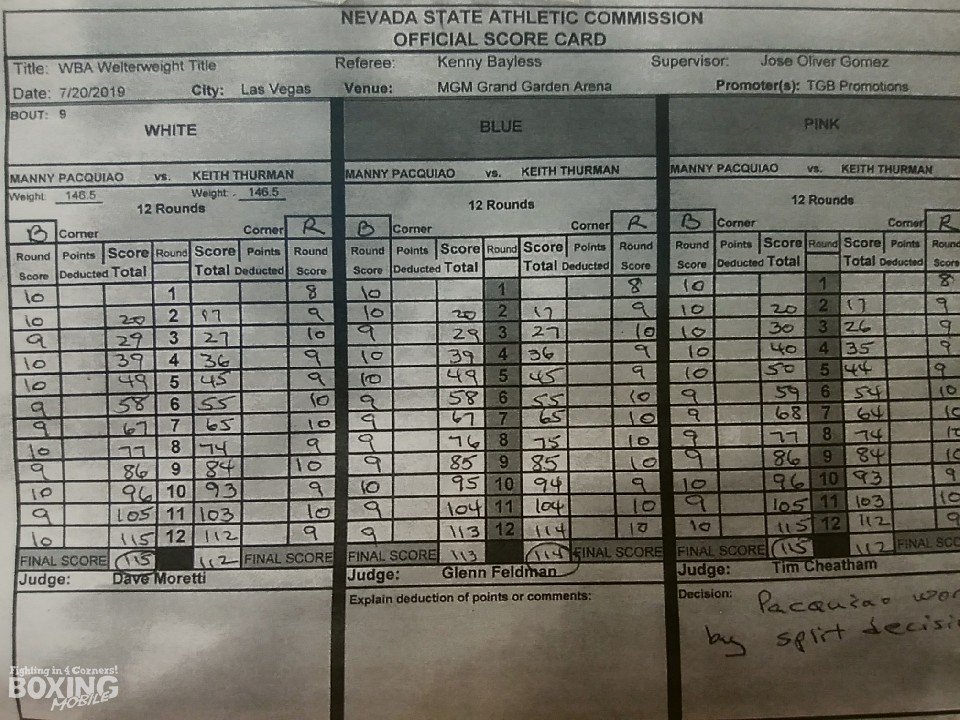 NEVADA STATE ATHLETIC COMMISSION
OFFICIAL SCORE CARD
Title: WBA Welterweight Title Referee: Kenny Bayless Supervisor: Jose Oliver Gomez
Date: 7/20/2019 City: Las Vegas Venue: MGM Grand Garden Arena Promoter(s): TGB Promotions
BOUT: 9
WHITE BLUE PINK
MANNY PACQUIAO vs. KEITH THURMAN MANNY PACQUIAO vs. KEITH THURMAN MANNY PACQUIAO vs. KEITH THURMAN
Weight: 146.5 Weight: 146.5
12 Rounds 12 Rounds 12 Rounds
B Corner Corner R B Corner Corner R B Corner Corner R
Round Points Score Round Score Points Round Round Points Score Round Score Points Round Round Points Score Round Score Points Round
Score Deducted Total Total Deducted Score Score Deducted Total Total Deducted Score Score Deducted Total Total Deducted Score
10 1 8 10 1 8 10 1 8
10 20 2 17 9 10 20 2 17 9 10 20 2 17 9
9 29 3 27 10 9 29 3 27 10 10 30 3 26 9
10 39 4 36 9 10 39 4 36 9 10 40 4 35 9
10 49 5 45 9 10 49 5 45 9 10 50 5 44 9
9 58 6 55 10 9 58 6 55 10 9 59 6 54 10
9 67 7 65 10 9 67 7 65 10 9 68 7 64 10
10 77 8 74 9 9 76 8 75 10 9 77 8 74 10
9 86 9 84 10 9 85 9 85 10 9 86 9 84 10
10 96 10 93 9 10 95 10 94 9 10 96 10 93 9
9 105 11 103 10 9 104 11 104 10 9 105 11 103 10
10 115 12 112 9 9 113 12 114 10 10 115 12 112 9
FINAL SCORE 115 112 FINAL SCORE FINAL SCORE 113 114 FINAL SCORE FINAL SCORE 115 112 FINAL SC
Judge: Dave Moretti Judge: Glenn Feldman Judge: Tim Cheatham
Explain deduction of points or comments: Decision: Pacquiao won
by split decisi
Fighting in 4 Corners!
BOXING
MOBILE